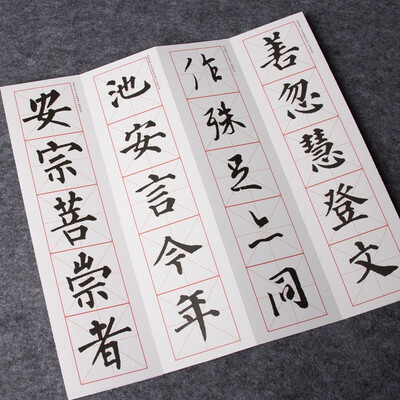 善忽慧登文
作殊足上同
池安言今年
安宗菩崇者